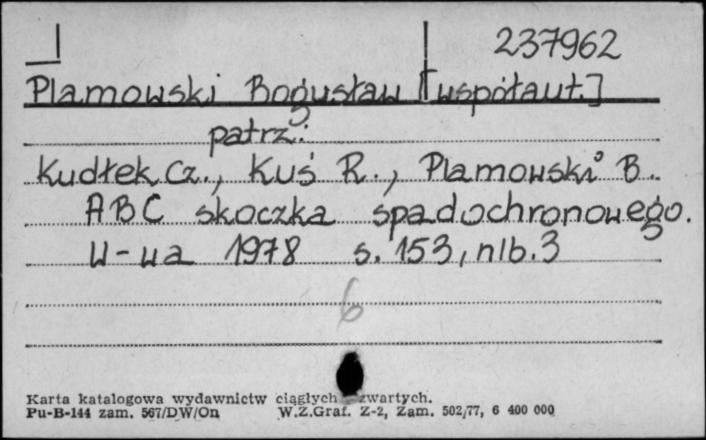 237962
Plamowski Bogusław [współaut.]
patrz:
Kudłek Cz., Kuś R., Plamowski B.
ABC skoczka spadochronowego.
W-wa 1978 s. 153, nlb. 3
6
Karta katalogowa wydawnictw ciągłych zwartych.
Pu-B-144 zam. 567/DW/On W.Z.Graf. Z-2, Zam. 502/77, 6 400 000